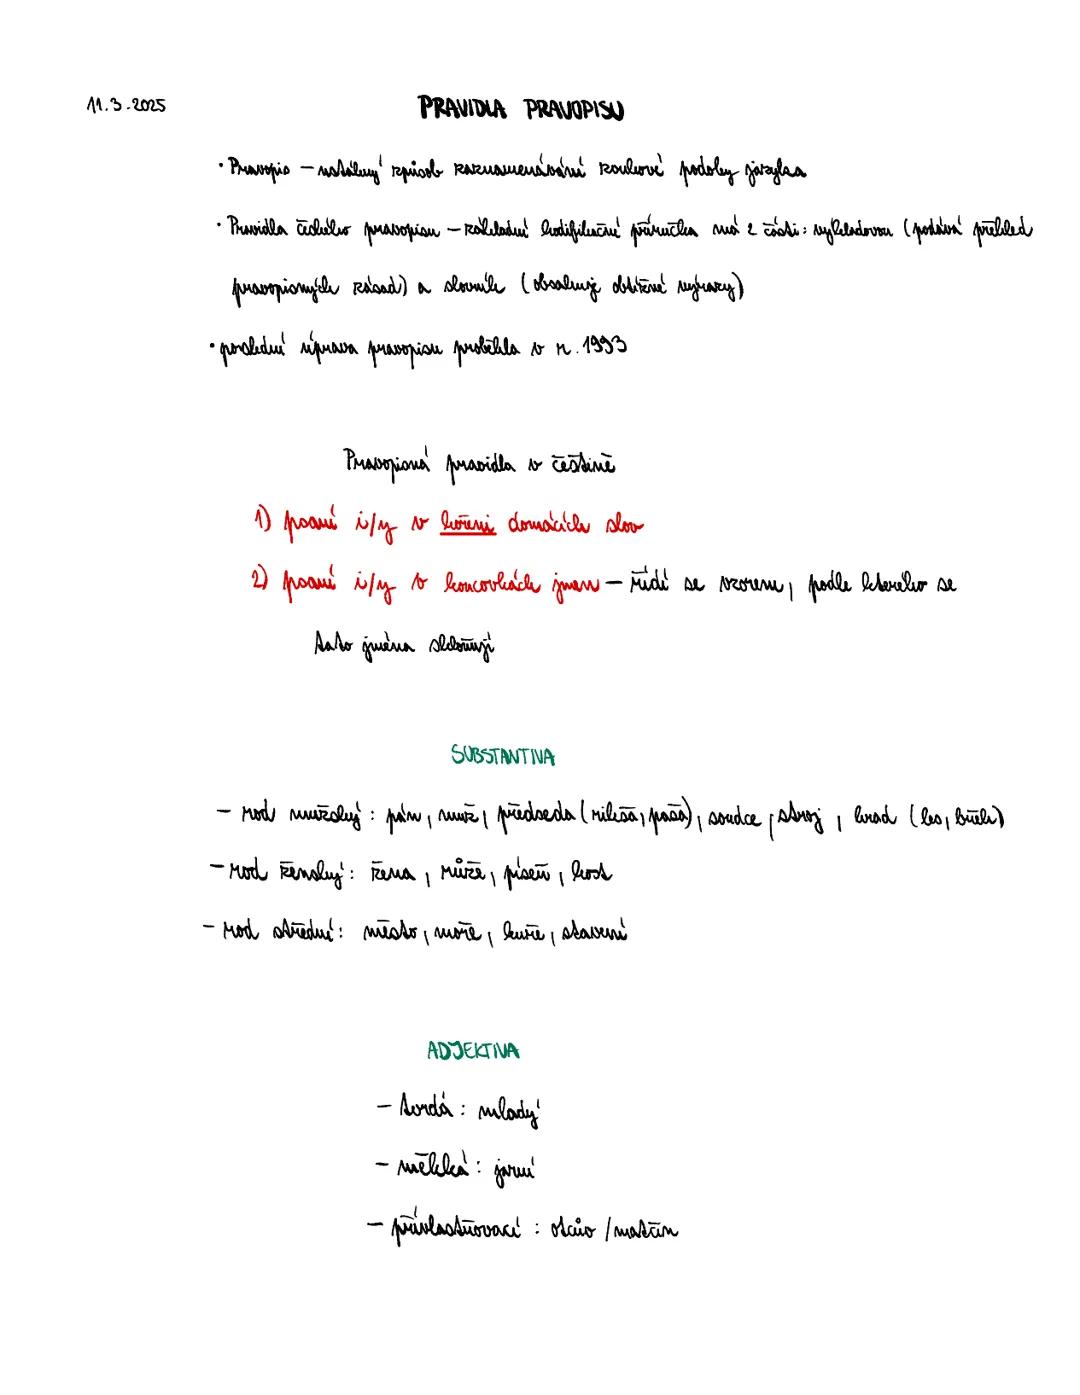 11.3.2025
PRAVIDLA PRAVOPISU
• Pravopis – ustálený způsob zaznamenávání zvukové podoby jazyka
• Pravidla českého pravopisu – základní kodifikační příručka má 2 části: výkladovou (podává přehled
pravopisných zásad) a slovník (obsahuje obtížné výrazy)
• poslední úprava pravopisu proběhla v r. 1993
Pravopisná pravidla v češtině
1) psaní i/y v kořeni domácích slov
2) psaní i/y v koncovkách jmen – řídí se vzorem, podle kterého se
tato jména skloňují
SUBSTANTIVA
– rod mužský: pán, muž, předseda (rikša, paša), soudce, stroj, hrad (les,
– rod ženský: žena, růže, píseň, kost
– rod střední: město, moře, kuře, stavení
ADJEKTIVA
– tvrdá: mladý
– měkká: jarní
– přivlastňovací: otcův /matčin